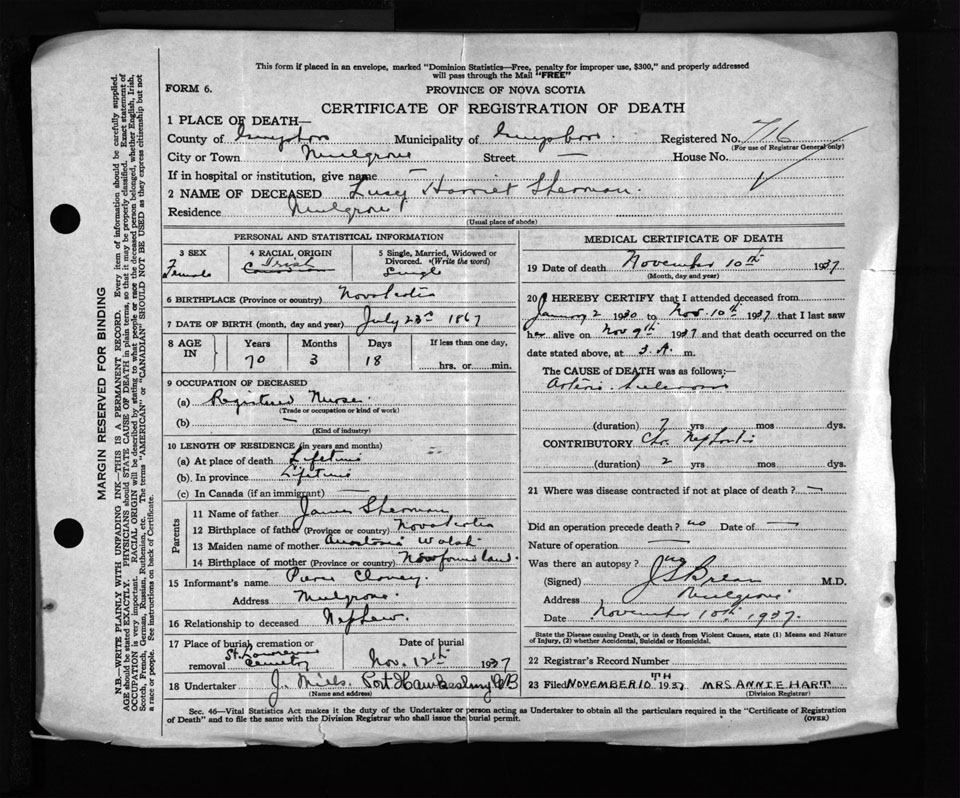 This form if placed in an envelope, marked "Dominion Statistics—Free, penalty for improper use, $300," and properly addressed
will pass through the Mail "FREE"
FORM 6.
PROVINCE OF NOVA SCOTIA
CERTIFICATE OF REGISTRATION OF DEATH
1 PLACE OF DEATH—
County of Guysboro Municipality of Guysboro Registered No. 716
(For use of Registrar General only)
City or Town Mulgrave Street — House No.
If in hospital or institution, give name —
2 NAME OF DECEASED Lucy Harriet Sherman.
Residence Mulgrave
(Usual place of abode)
PERSONAL AND STATISTICAL INFORMATION
3 SEX
Female
4 RACIAL ORIGIN
Irish
5 Single, Married, Widowed or
Divorced. (Write the word)
Single
6 BIRTHPLACE (Province or country) Nova Scotia
7 DATE OF BIRTH (month, day and year) July 23rd 1867
8 AGE IN Years Months Days If less than one day,
70 3 18 hrs. or min.
9 OCCUPATION OF DECEASED
(a) Registered Nurse.
(Trade or occupation or kind of work)
(b) —
(Kind of industry)
10 LENGTH OF RESIDENCE (in years and months)
(a) At place of death Lifetime
(b) In province Lifetime
(c) In Canada (if an immigrant) —
Parents
11 Name of father James Sherman
12 Birthplace of father (Province or country) Nova Scotia
13 Maiden name of mother Walsh
14 Birthplace of mother (Province or country) Newfoundland.
15 Informant's name
Address Mulgrave
16 Relationship to deceased Nephew.
17 Place of burial, cremation or
removal St. Lawrence
Cemetery
Date of burial
Nov. 12th 1937
18 Undertaker J. Mills. Port Hawkesbury CB
(Name and address)
MEDICAL CERTIFICATE OF DEATH
19 Date of death November 10th 1937
(Month, day and year)
20 I HEREBY CERTIFY that I attended deceased from
January 2 1930 to Nov. 10th 1937 that I last saw
her alive on Nov 9th 1937 and that death occurred on the
date stated above, at 3.A. m.
The CAUSE of DEATH was as follows:—
Arterio Sclerosis
(duration) 7 yrs mos dys.
CONTRIBUTORY Chr. Nephritis
(duration) 2 yrs mos dys.
21 Where was disease contracted if not at place of death? —
Did an operation precede death? no Date of —
Nature of operation —
Was there an autopsy? no
(Signed) M.D.
Address Mulgrave
Date November 10th 1937.
State the Disease causing Death, or in death from Violent Causes, state (1) Means and Nature
of Injury, (2) whether Accidental, Suicidal or Homicidal.
22 Registrar's Record Number
23 Filed NOVEMBER 10TH 1937 MRS ANNIE HART
(Division Registrar)
Sec. 46—Vital Statistics Act makes it the duty of the Undertaker or person acting as Undertaker to obtain all the particulars required in the "Certificate of Registration
of Death" and to file the same with the Division Registrar who shall issue the burial permit. (OVER)
MARGIN RESERVED FOR BINDING
N.B.—WRITE PLAINLY WITH UNFADING INK—THIS IS A PERMANENT RECORD. Every item of information should be carefully supplied.
AGE should be stated EXACTLY. PHYSICIANS should STATE CAUSE OF DEATH in plain terms, so that it may be properly classified. Exact statement of
OCCUPATION is very important. RACIAL ORIGIN will be described by stating to what people or race the deceased person belonged, whether English, Irish,
Scotch, French, German, Russian, Ruthenian, etc. The terms "AMERICAN" or "CANADIAN" SHOULD NOT BE USED as they express citizenship but not
a race or people. See instructions on back of Certificate.